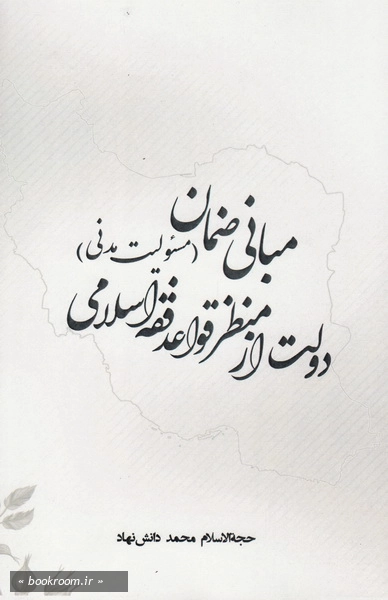 مبانی ضمان
(مسئولیت مدنی)
دولت از منظر قواعد فقه اسلامی
حجةالاسلام محمد دانش‌نهاد
« bookroom.ir »